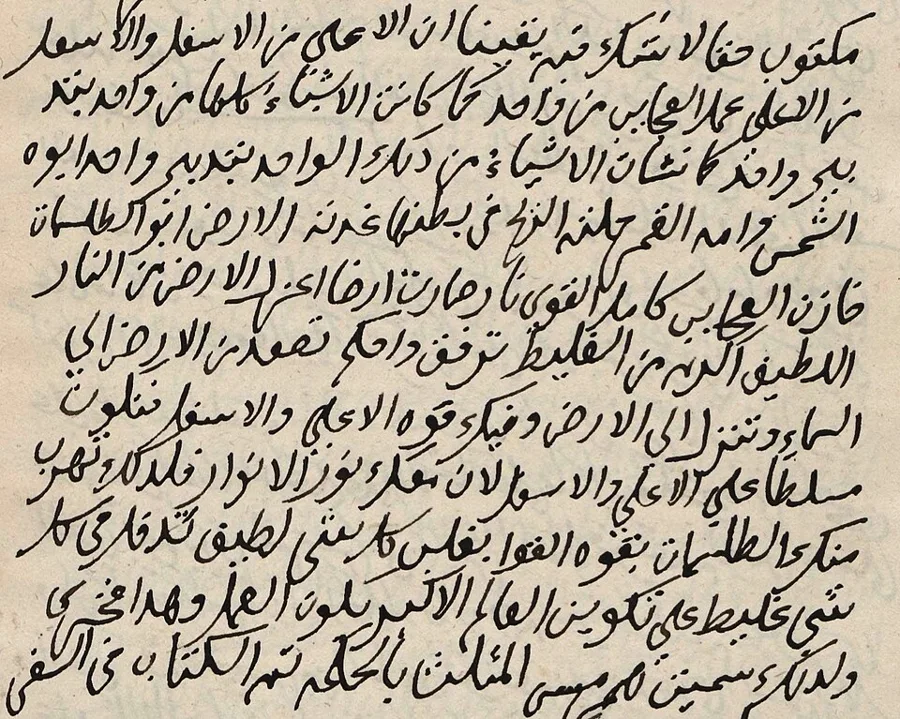 مكتوب حقا لا شك فيه يقينا ان الاعلي من الاسفل والاسفل
من الاعلي عمل العجايب من واحد كما كانت الاشياء كلها من واحد بتد
بير واحد كما نشات الاشياء من ذلك الواحد بتدبير واحد ابوه
الشمس وامه القمر حملته الريح في بطنها غدته الارض ابو الطلسمات
خازن العجايب كامل القوي نار صارت ارضا اعزل الارض من النار
اللطيف اكرم من الغليظ ترفق واحكم تصعد من الارض الي
السماء وتنزل الي الارض وفيك قوه الاعلي والاسفل فتكون
مسلطا علي الاعلي والاسفل لان معك نور الانوار فلذلك تهرب
منك الطلسمات بقوه القوا يغلب كل شي لطيف تدخل في كل
شي غليظ علي تكوين العالم الاكبر يكون العمل وهدا فخري
ولذلك سميت هرمس المثلث بالحكمه تم الكتاب في السفر